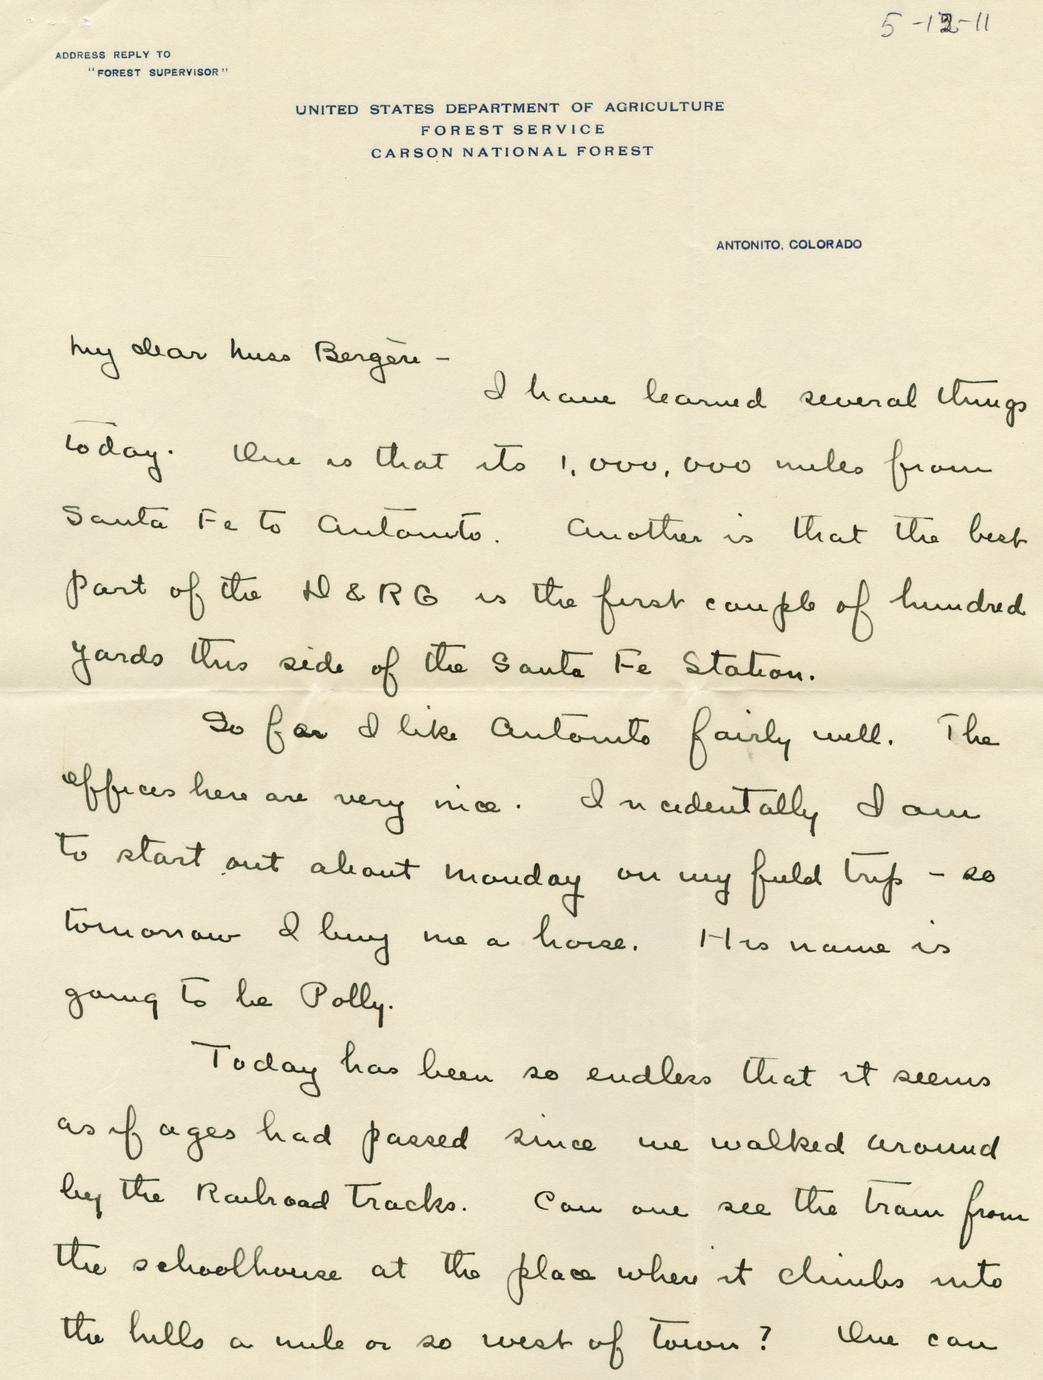 5-12-11
ADDRESS REPLY TO
"FOREST SUPERVISOR"
UNITED STATES DEPARTMENT OF AGRICULTURE
FOREST SERVICE
CARSON NATIONAL FOREST
ANTONITO, COLORADO
My dear Miss Bergère -
I have learned several things
today. One is that its 1,000,000 miles from
Santa Fe to Antonito. Another is that the best
part of the D & RG is the first couple of hundred
yards this side of the Santa Fe Station.
So far I like Antonito fairly well. The
offices here are very nice. Incidentally I am
to start out about Monday on my field trip - so
tomorrow I buy me a horse. His name is
going to be Polly.
Today has been so endless that it seems
as if ages had passed since we walked around
by the Railroad Tracks. Can one see the train from
the schoolhouse at the place where it climbs into
the hills a mile or so west of town? One can